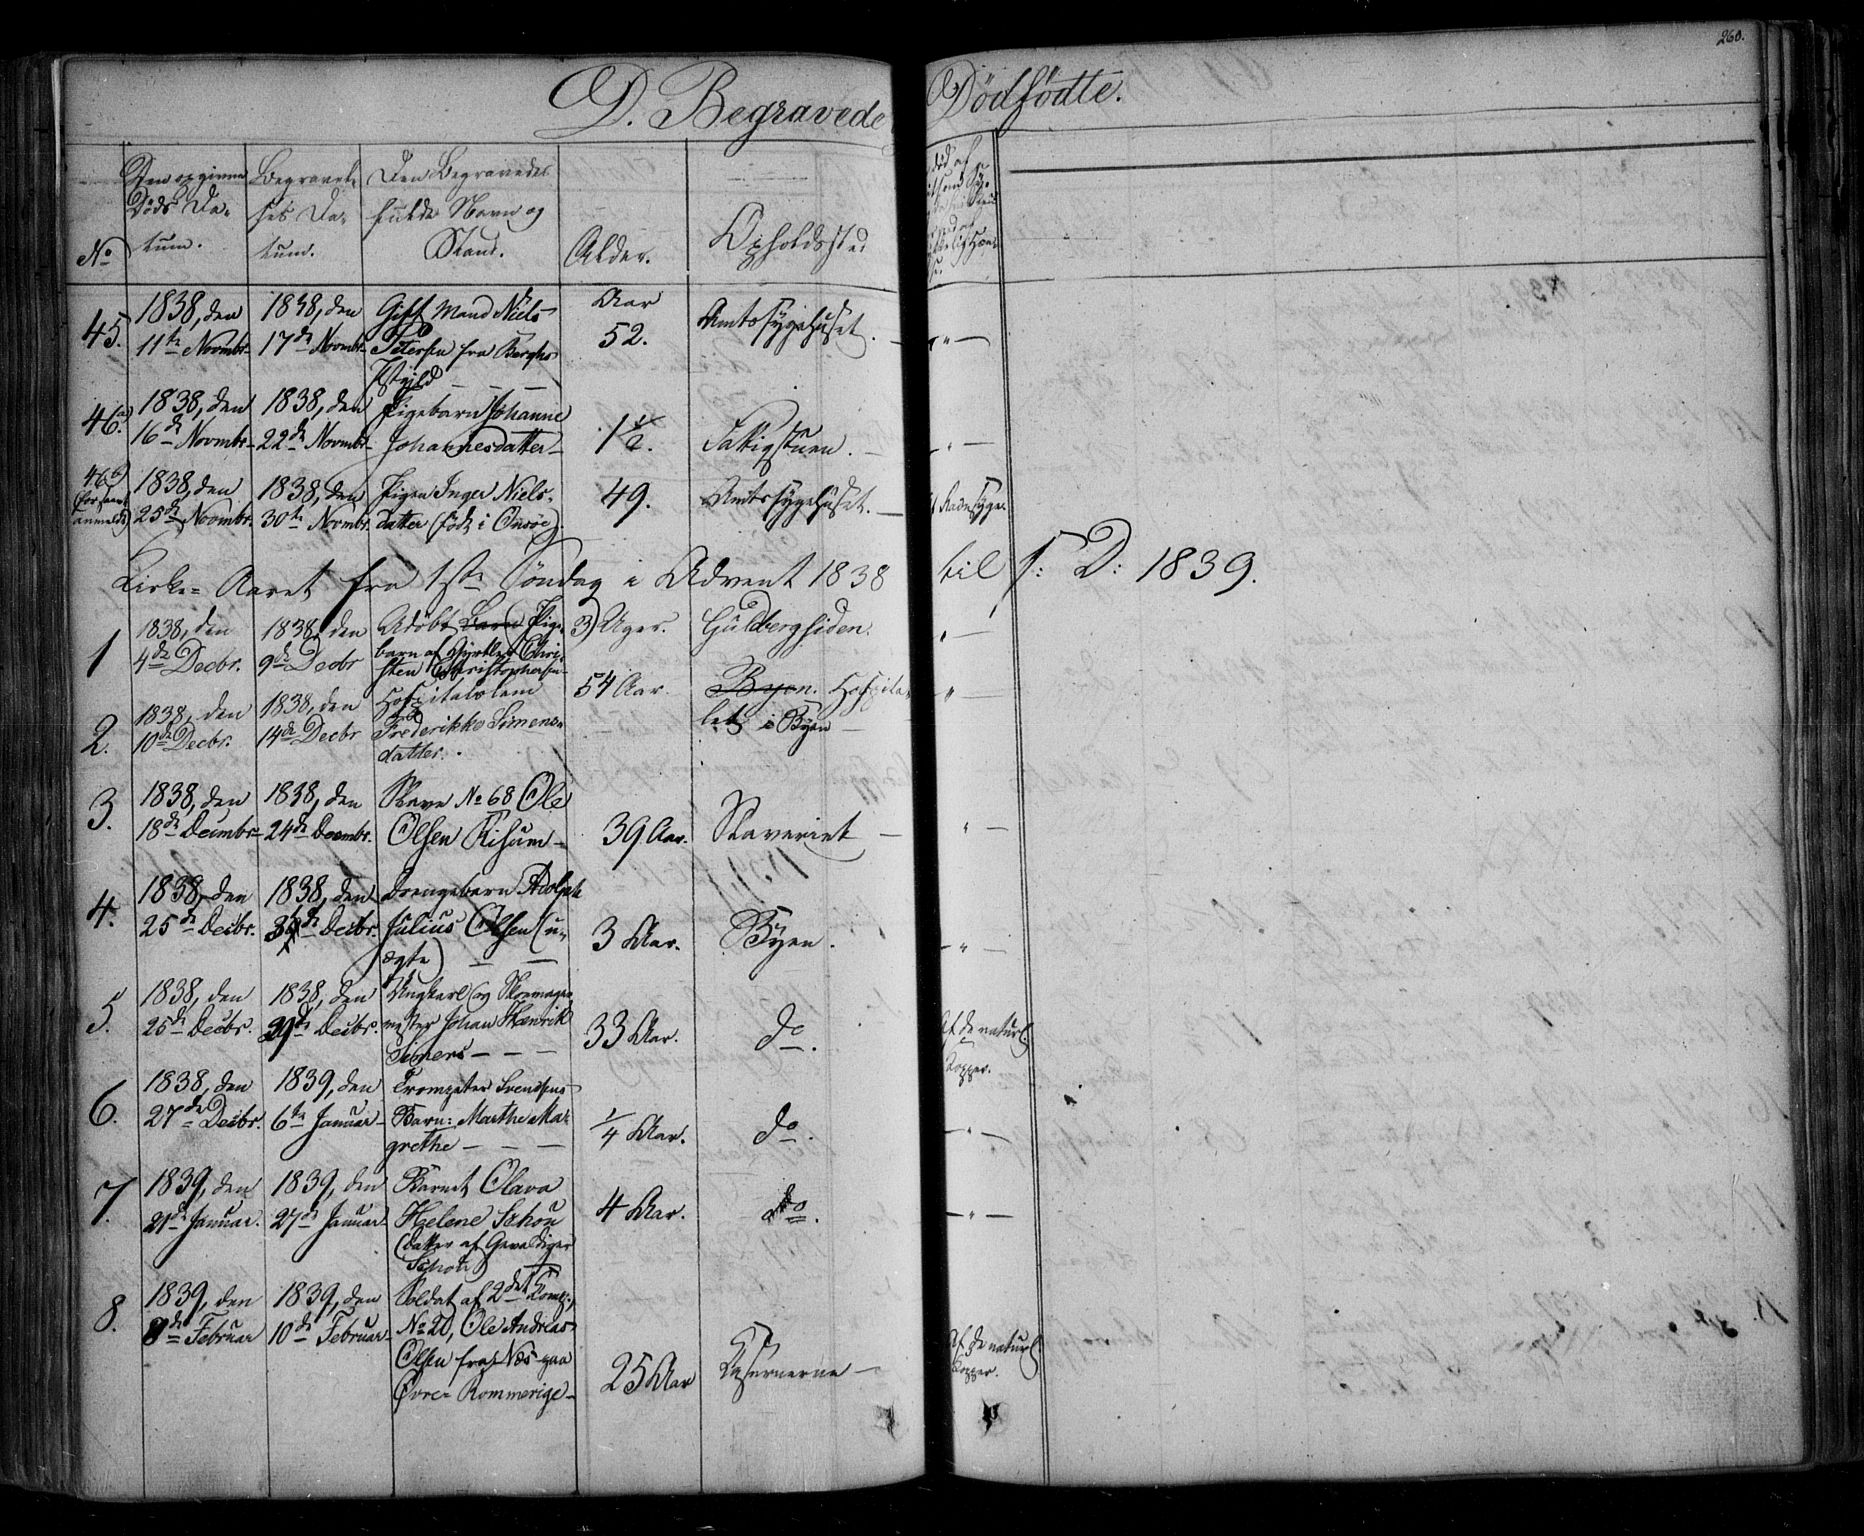 260.
D. Begravede Dödfödte.
No
Den opgivne Døds Datum.
Begravelses Datum.
Den Begravedes fulde Navn og Stand.
Alder.
Opholdssted
45. 1838, den 11te Novmbr. 1838, den 17de Novmbr. Gift Mand Niels Petersen fra Aar 52. Amtssygehuset. — " —
46a) 1838, den 16de Novmbr. 1838, den 22de Novmbr. Pigebarn Johanne Johannesdatter 1 1/2. Fattigstuen. — " —
46b) 1838, den 25de Novmbr. 1838, den 30te Novmbr. Pigen Inger Nielsdatter (født i Onsøe). 49. Amtssygehuset. — Radesyge.
Kirke-Aaret fra 1ste Søndag i Advent 1838 til S: D: 1839.
1 1838, den 4de Decbr. 1838, den 9de Decbr Udöbt Barn Pigebarn af Gjørtler Christen Christophersen 3) Uger. Guldbergsiden. — " —
2. 1838, den 10de Decbr. 1838, den 14de Decbr Hospitalslem Frederikke Simensdatter. 54 Aar. Byen. Hospitalet i Byen — — " —
3. 1838, den 18de Decmbr. 1838, den 24de Decmbr. Slave No 68 Ole Olsen Risum — 39 Aar. Slaveriet — — " —
4. 1838, den 25de Decbr. 1838, den Decbr. Drengebarn Adolph Julius Olsen (uægte) — — 3 Aar. Byen. — " —
5. 1838, den 25de Decbr. 1838, den 31de Decbr. Ungkarl og Skomagermester Johan Henrik Simers — — — 33 Aar. do. Af de naturl. Kopper.
6. 1838, den 27de Decbr. 1839, den 6te Januar Trompeter Svendsens Barn: Marthe Margrethe — — — 1/4 Aar. do. — " —
7. 1839, den 21de Januar. 1839, den 27de Januar. Barnet Olava Helene Schou (Datter af Gevaldiger Schou) 4 Aar. do. — " —
8. 1839, den Februar 1839, den 10de Februar Soldat af 2det Comp., No 20, Ole Andreas Olsen fra Næs paa Øvre Rommerige — 25 Aar Casernerne — Af de naturl. Kopper.